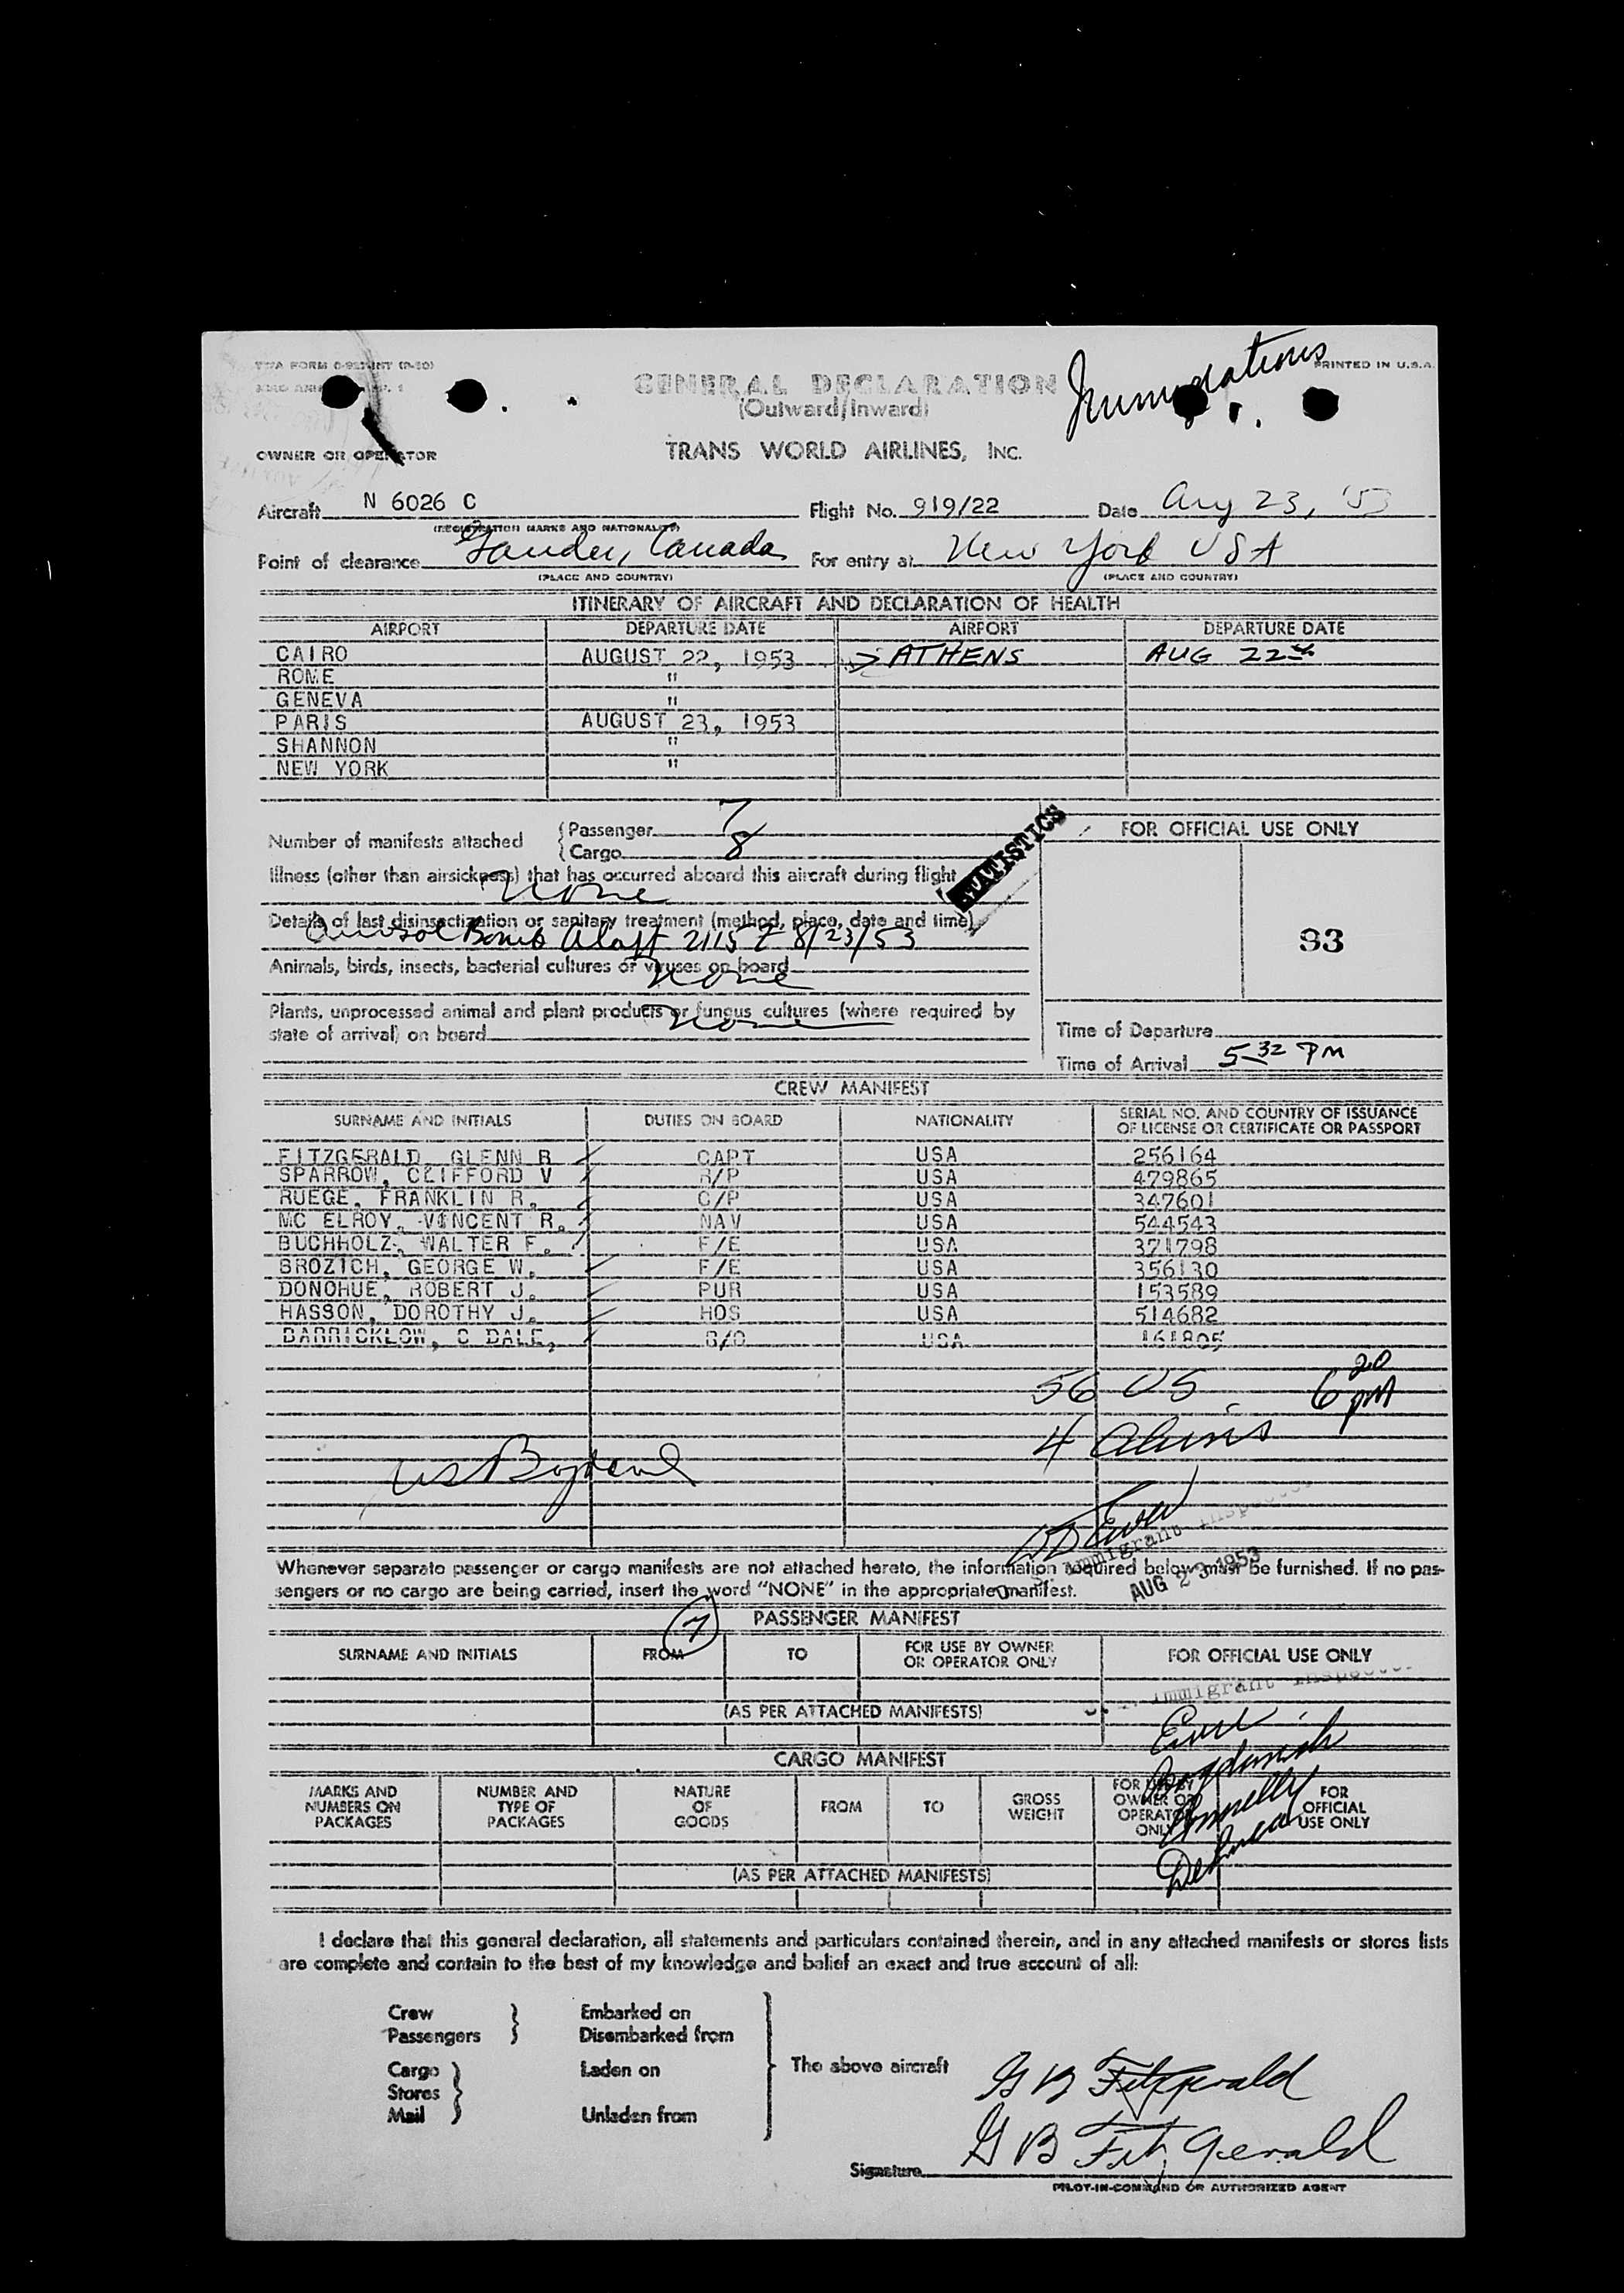 PRINTED IN U.S.A.
GENERAL DECLARATION
(Outward/Inward)
OWNER OR OPERATOR
TRANS WORLD AIRLINES, INC.
Aircraft N 6026 C Flight No. 919/22 Date Aug 23, '53
(REGISTRATION MARKS AND NATIONALITY)
Point of clearance Gander, Canada For entry at New York USA
(PLACE AND COUNTRY) (PLACE AND COUNTRY)
ITINERARY OF AIRCRAFT AND DECLARATION OF HEALTH
AIRPORT DEPARTURE DATE AIRPORT DEPARTURE DATE
CAIRO AUGUST 22, 1953 > ATHENS AUG 22
ROME "
GENEVA "
PARIS AUGUST 23, 1953
SHANNON "
NEW YORK "
Number of manifests attached { Passenger 7
{ Cargo 8
STATISTICS
FOR OFFICIAL USE ONLY
Illness (other than airsickness) that has occurred aboard this aircraft during flight
None
Details of last disinsectization or sanitary treatment (method, place, date and time)
Bomb Aloft 2115 Z 8/23/53
93
Animals, birds, insects, bacterial cultures or viruses on board None
Plants, unprocessed animal and plant products or fungus cultures (where required by
state of arrival) on board None
Time of Departure
Time of Arrival 5 32 PM
CREW MANIFEST
SURNAME AND INITIALS DUTIES ON BOARD NATIONALITY SERIAL NO. AND COUNTRY OF ISSUANCE
OF LICENSE OR CERTIFICATE OR PASSPORT
FITZGERALD GLENN B CAPT USA 256164
SPARROW, CLIFFORD V R/P USA 479865
RUEGE, FRANKLIN R. C/P USA 347601
MC ELROY, VINCENT R. NAV USA 544543
BUCHHOLZ, WALTER F. F/E USA 371798
BROZICH, GEORGE W. F/E USA 356130
DONOHUE, ROBERT J. PUR USA 153589
HASSON, DOROTHY J. HOS USA 514682
BARRICKLOW, C DALE, R/O USA 161805
56 US 6 20 PM
4 aliens
Immigrant Inspector
AUG 23 1953
Whenever separate passenger or cargo manifests are not attached hereto, the information required below must be furnished. If no pas-
sengers or no cargo are being carried, insert the word "NONE" in the appropriate manifest.
7
PASSENGER MANIFEST
SURNAME AND INITIALS FROM TO FOR USE BY OWNER
OR OPERATOR ONLY FOR OFFICIAL USE ONLY
Immigrant Inspector
(AS PER ATTACHED MANIFESTS)
CARGO MANIFEST
MARKS AND
NUMBERS ON
PACKAGES
NUMBER AND
TYPE OF
PACKAGES
NATURE
OF
GOODS
FROM
TO
GROSS
WEIGHT
FOR USE BY
OWNER OR
OPERATOR
ONLY
FOR
OFFICIAL
USE ONLY
(AS PER ATTACHED MANIFESTS)
I declare that this general declaration, all statements and particulars contained therein, and in any attached manifests or stores lists
are complete and contain to the best of my knowledge and belief an exact and true account of all:
Crew } Embarked on
Passengers } Disembarked from
Cargo } Laden on
Stores
Mail } Unladen from
The above aircraft
G B Fitzgerald
G B FitzGerald
Signature
PILOT-IN-COMMAND OR AUTHORIZED AGENT